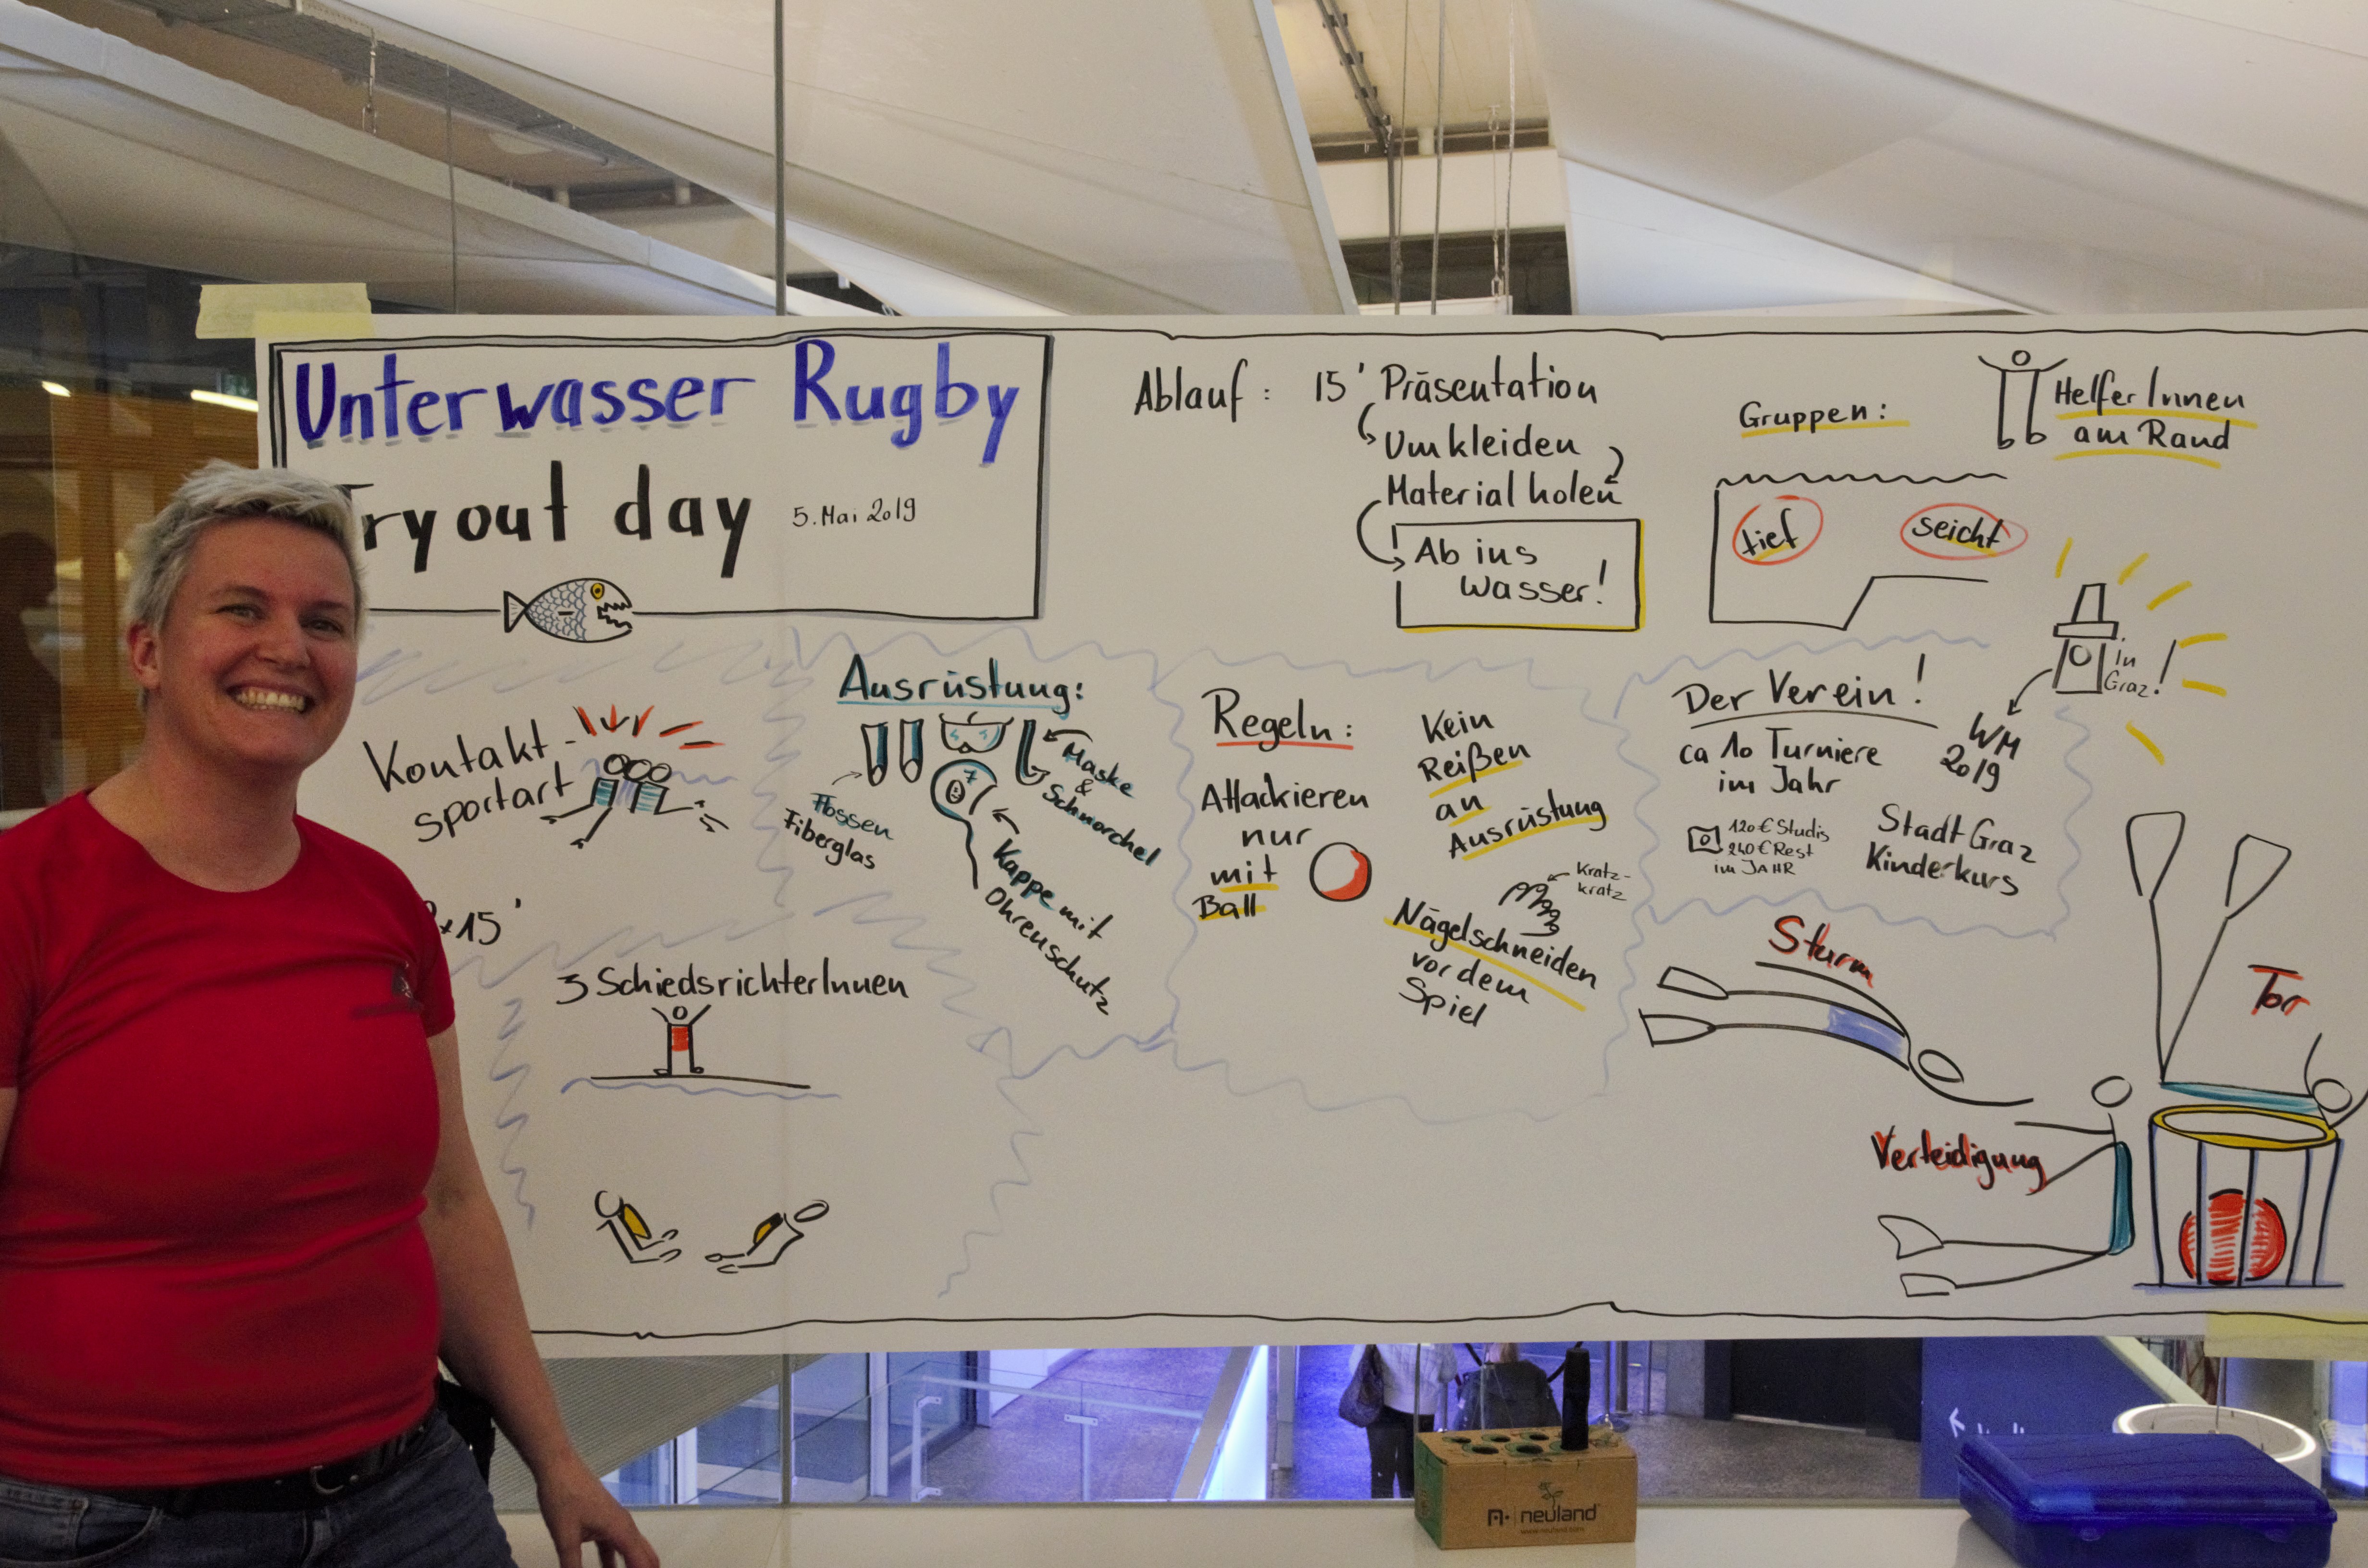 Unterwasser Rugby
Tryout day 5. Mai 2019
Ablauf: 15' Präsentation
Umkleiden
Material holen
Ab ins
Wasser!
Gruppen:
HelferInnen
am Rand
tief
seicht
Kontakt-
sportart
15'
3 SchiedsrichterInnen
Ausrüstung:
Flossen
Fiberglas
Maske
&
Schnorchel
7
Kappe mit
Ohrenschutz
Regeln:
Attackieren
nur
mit
Ball
Kein
Reißen
an
Ausrüstung
Kratz-
kratz
Nägelschneiden
vor dem
Spiel
Der Verein!
ca 10 Turniere
im Jahr
120€ Studis
240€ Rest
im JAHR
In
Graz!
WM
2019
Stadt Graz
Kinderkurs
Sturm
Tor
Verteidigung
neuland